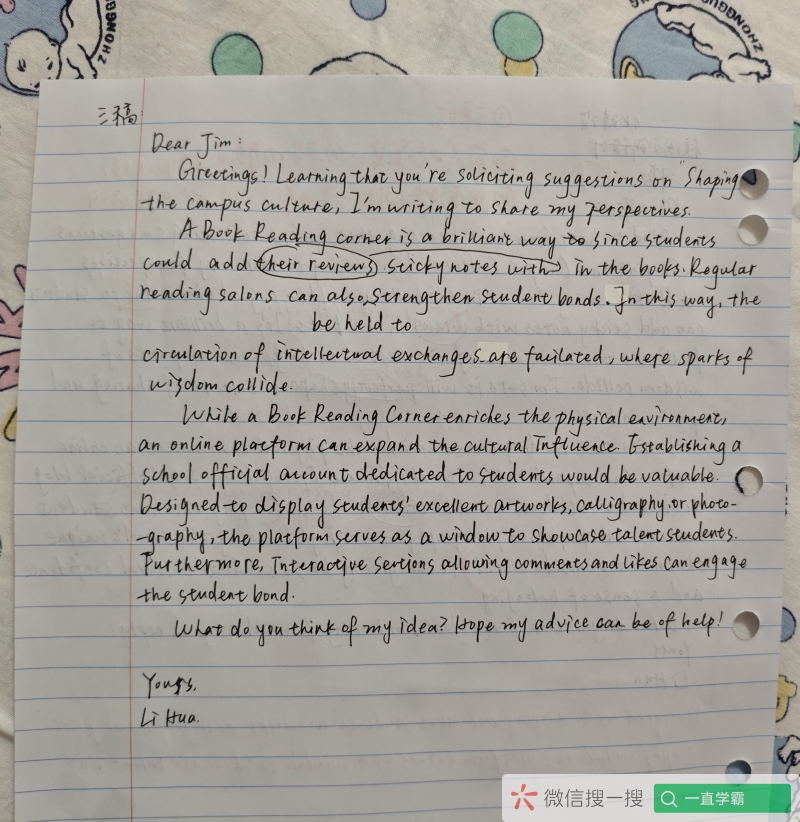 ZHONGGU
ZHONGGU
三稿
Dear Jim:
Greetings! Learning that you're soliciting suggestions on "Shaping
the campus culture, I'm writing to share my perspectives.
A Book Reading corner is a brilliant way to since students
could add their reviews sticky notes with in the books. Regular
reading salons can also strengthen student bonds. In this way, the
be held to
circulation of intellectual exchanges are facilated, where sparks of
wisdom collide.
While a Book Reading Corner enriches the physical environment,
an online platform can expand the cultural Influence. Establishing a
school official account dedicated to students would be valuable.
Designed to display students' excellent artworks, calligraphy or photo-
-graphy, the platform serves as a window to showcase talent students.
Furthermore, Interactive sections allowing comments and likes can engage
the student bond.
What do you think of my idea? Hope my advice can be of help!
Yours,
Li Hua.
微信搜一搜
一直学霸